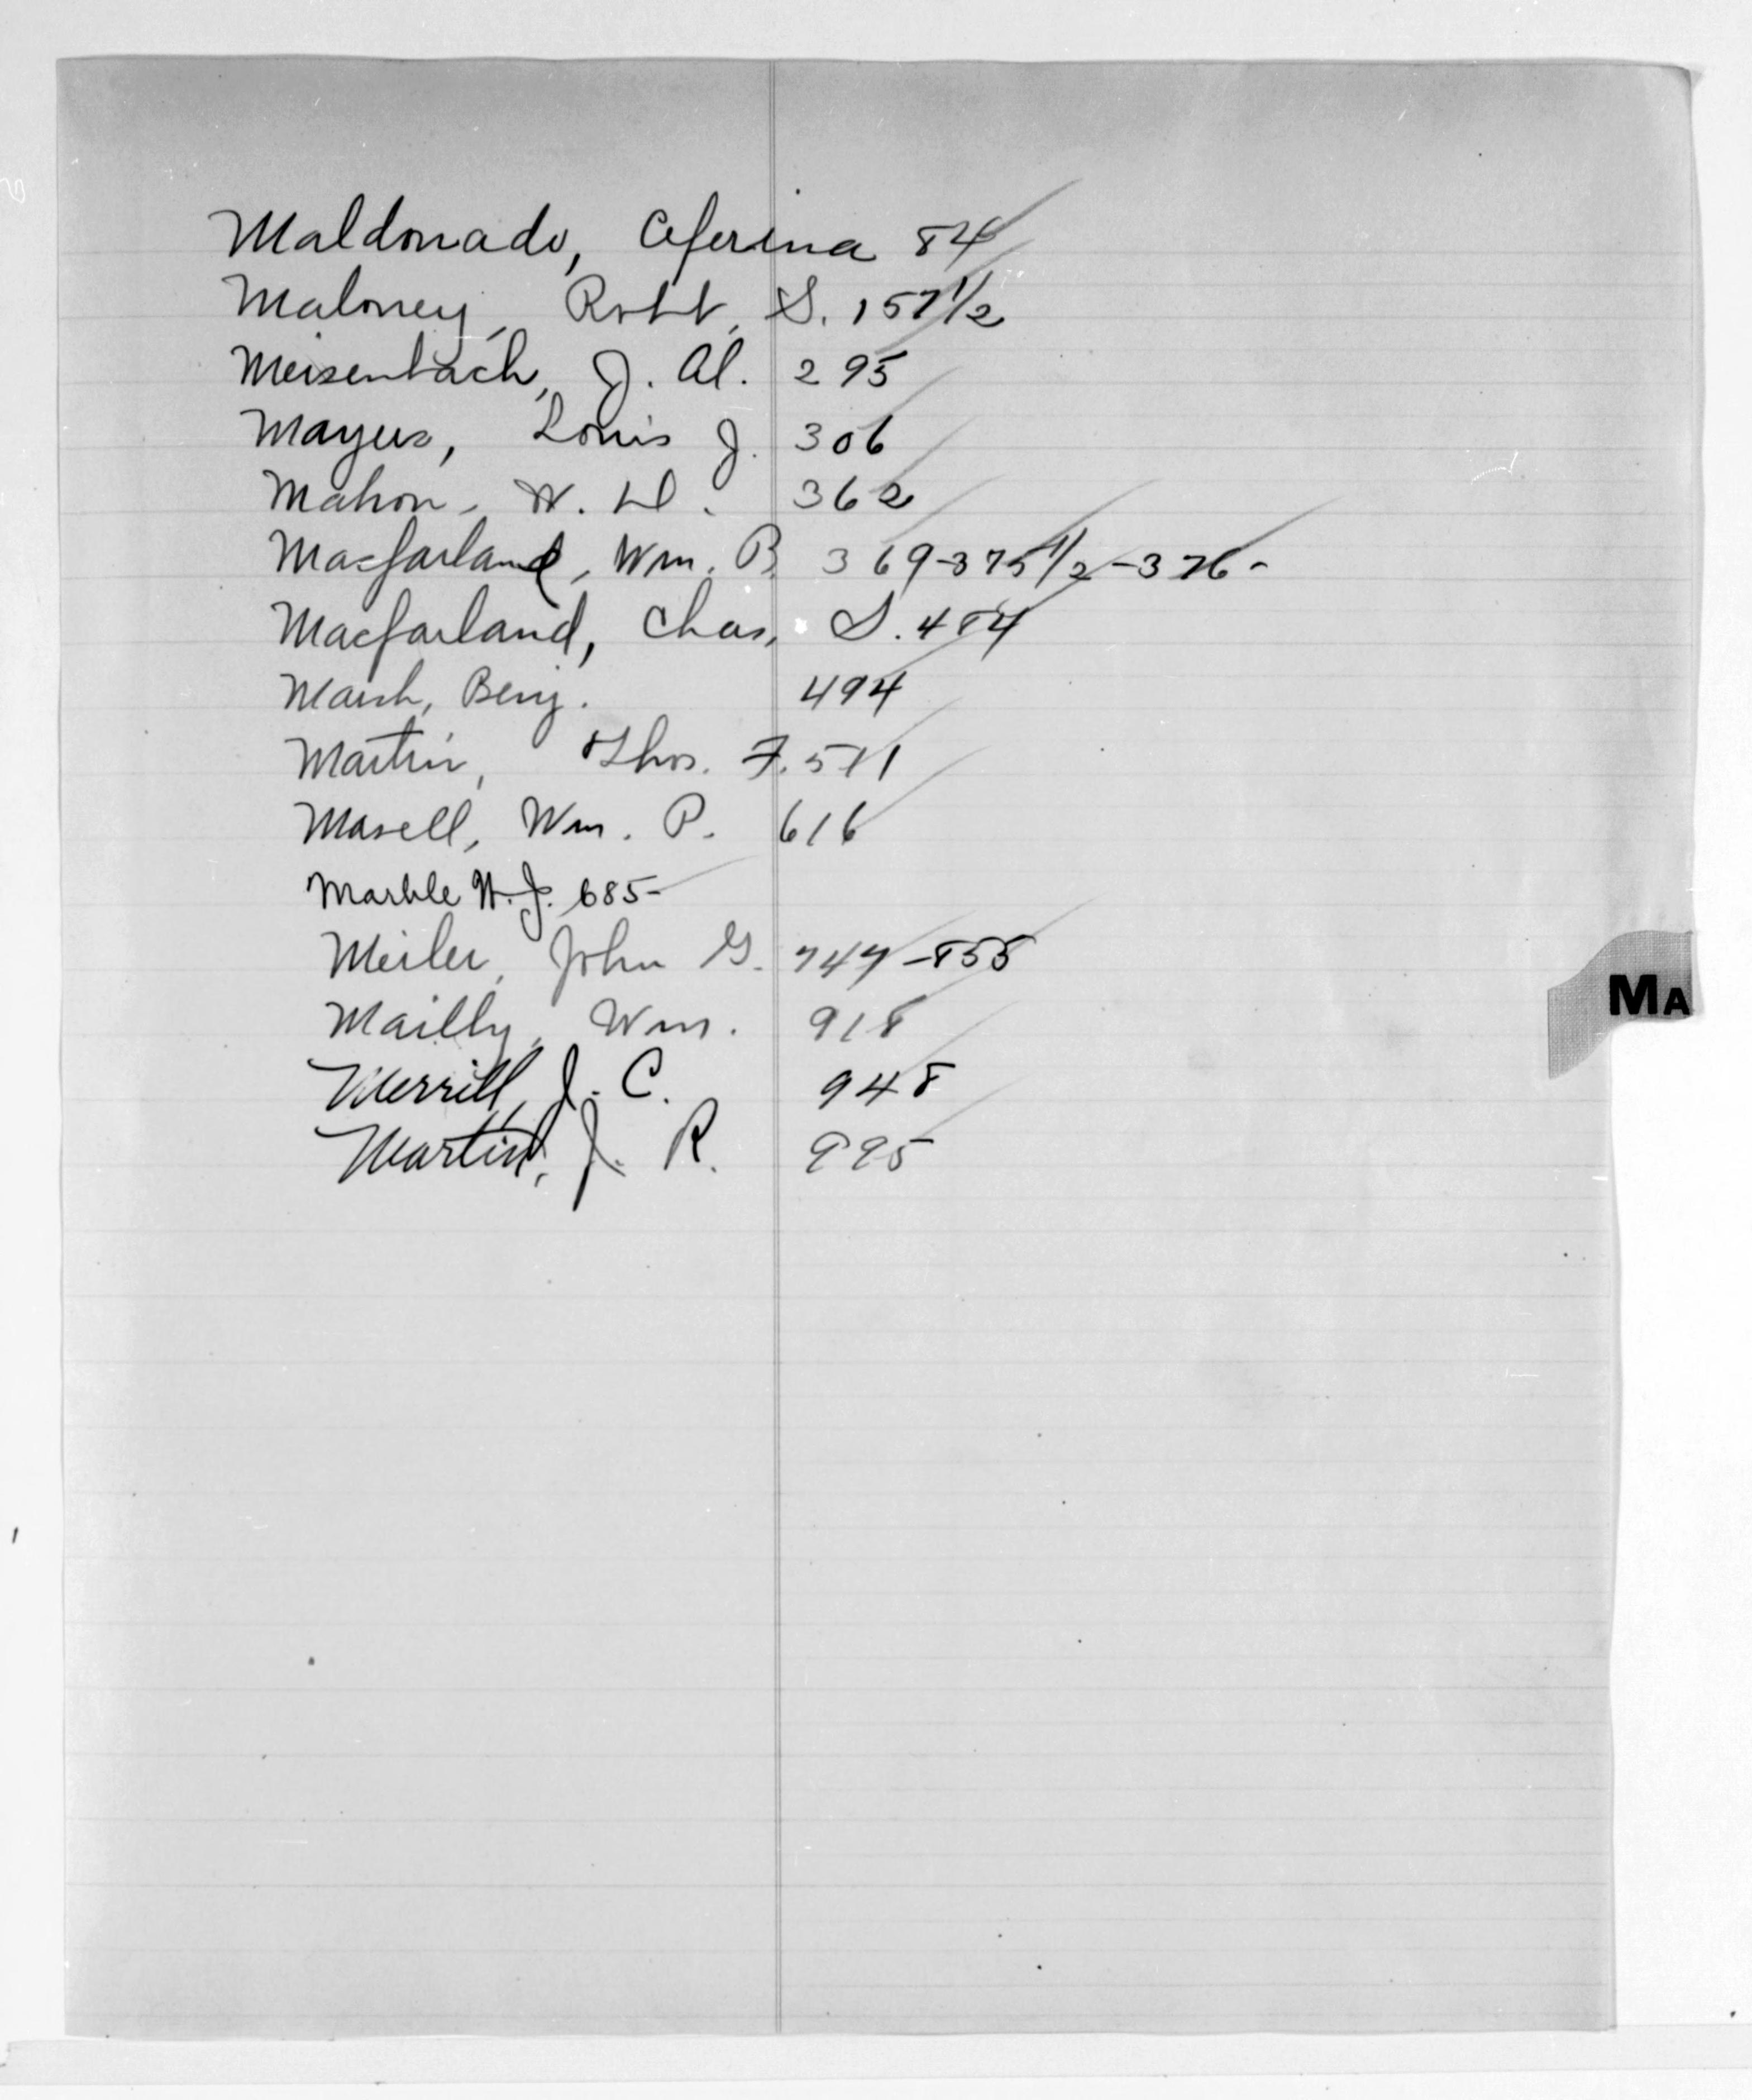 Maldonado, Ceferina 84
Maloney, Robt. S. 157 1/2
Meisenbach, J. Al. 295
Mayers, Louis J. 306
Mahon, W. D. 362
Macfarland, Wm. B. 369-375 1/2-376-
Macfarland, Chas. S. 484
Marsh, Benj. 494
Martin, Thos. F. 511
Masell, Wm. P. 616
Marble W. J. 685-
Meiler, John G. 747-855
MA
Mailly, Wm. 918
Merrill, J. C. 948
Martin, J. R. 995